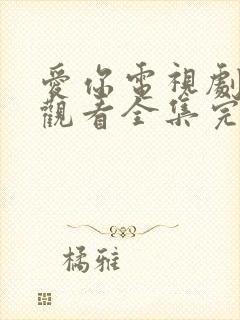 愛你電視劇
觀看全集完
橘雅